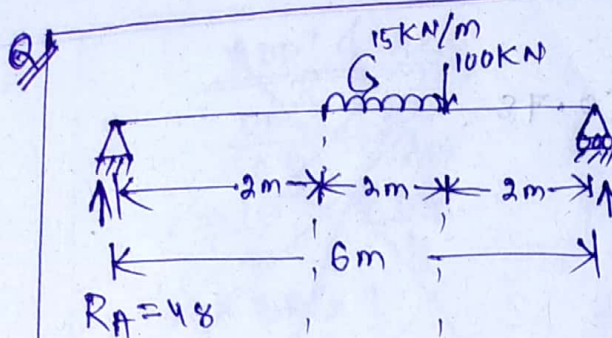 Q
15KN/m
100KN
2m 2m 2m
6m
RA=48